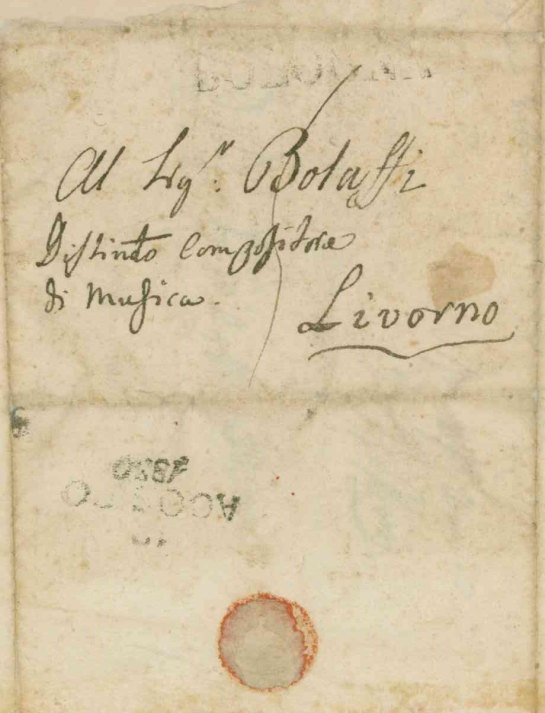 BOLOGNA
Al Sigʳ. Bolaffi
Distinto Compositore
di Musica.
Livorno
AGOSTO
1820